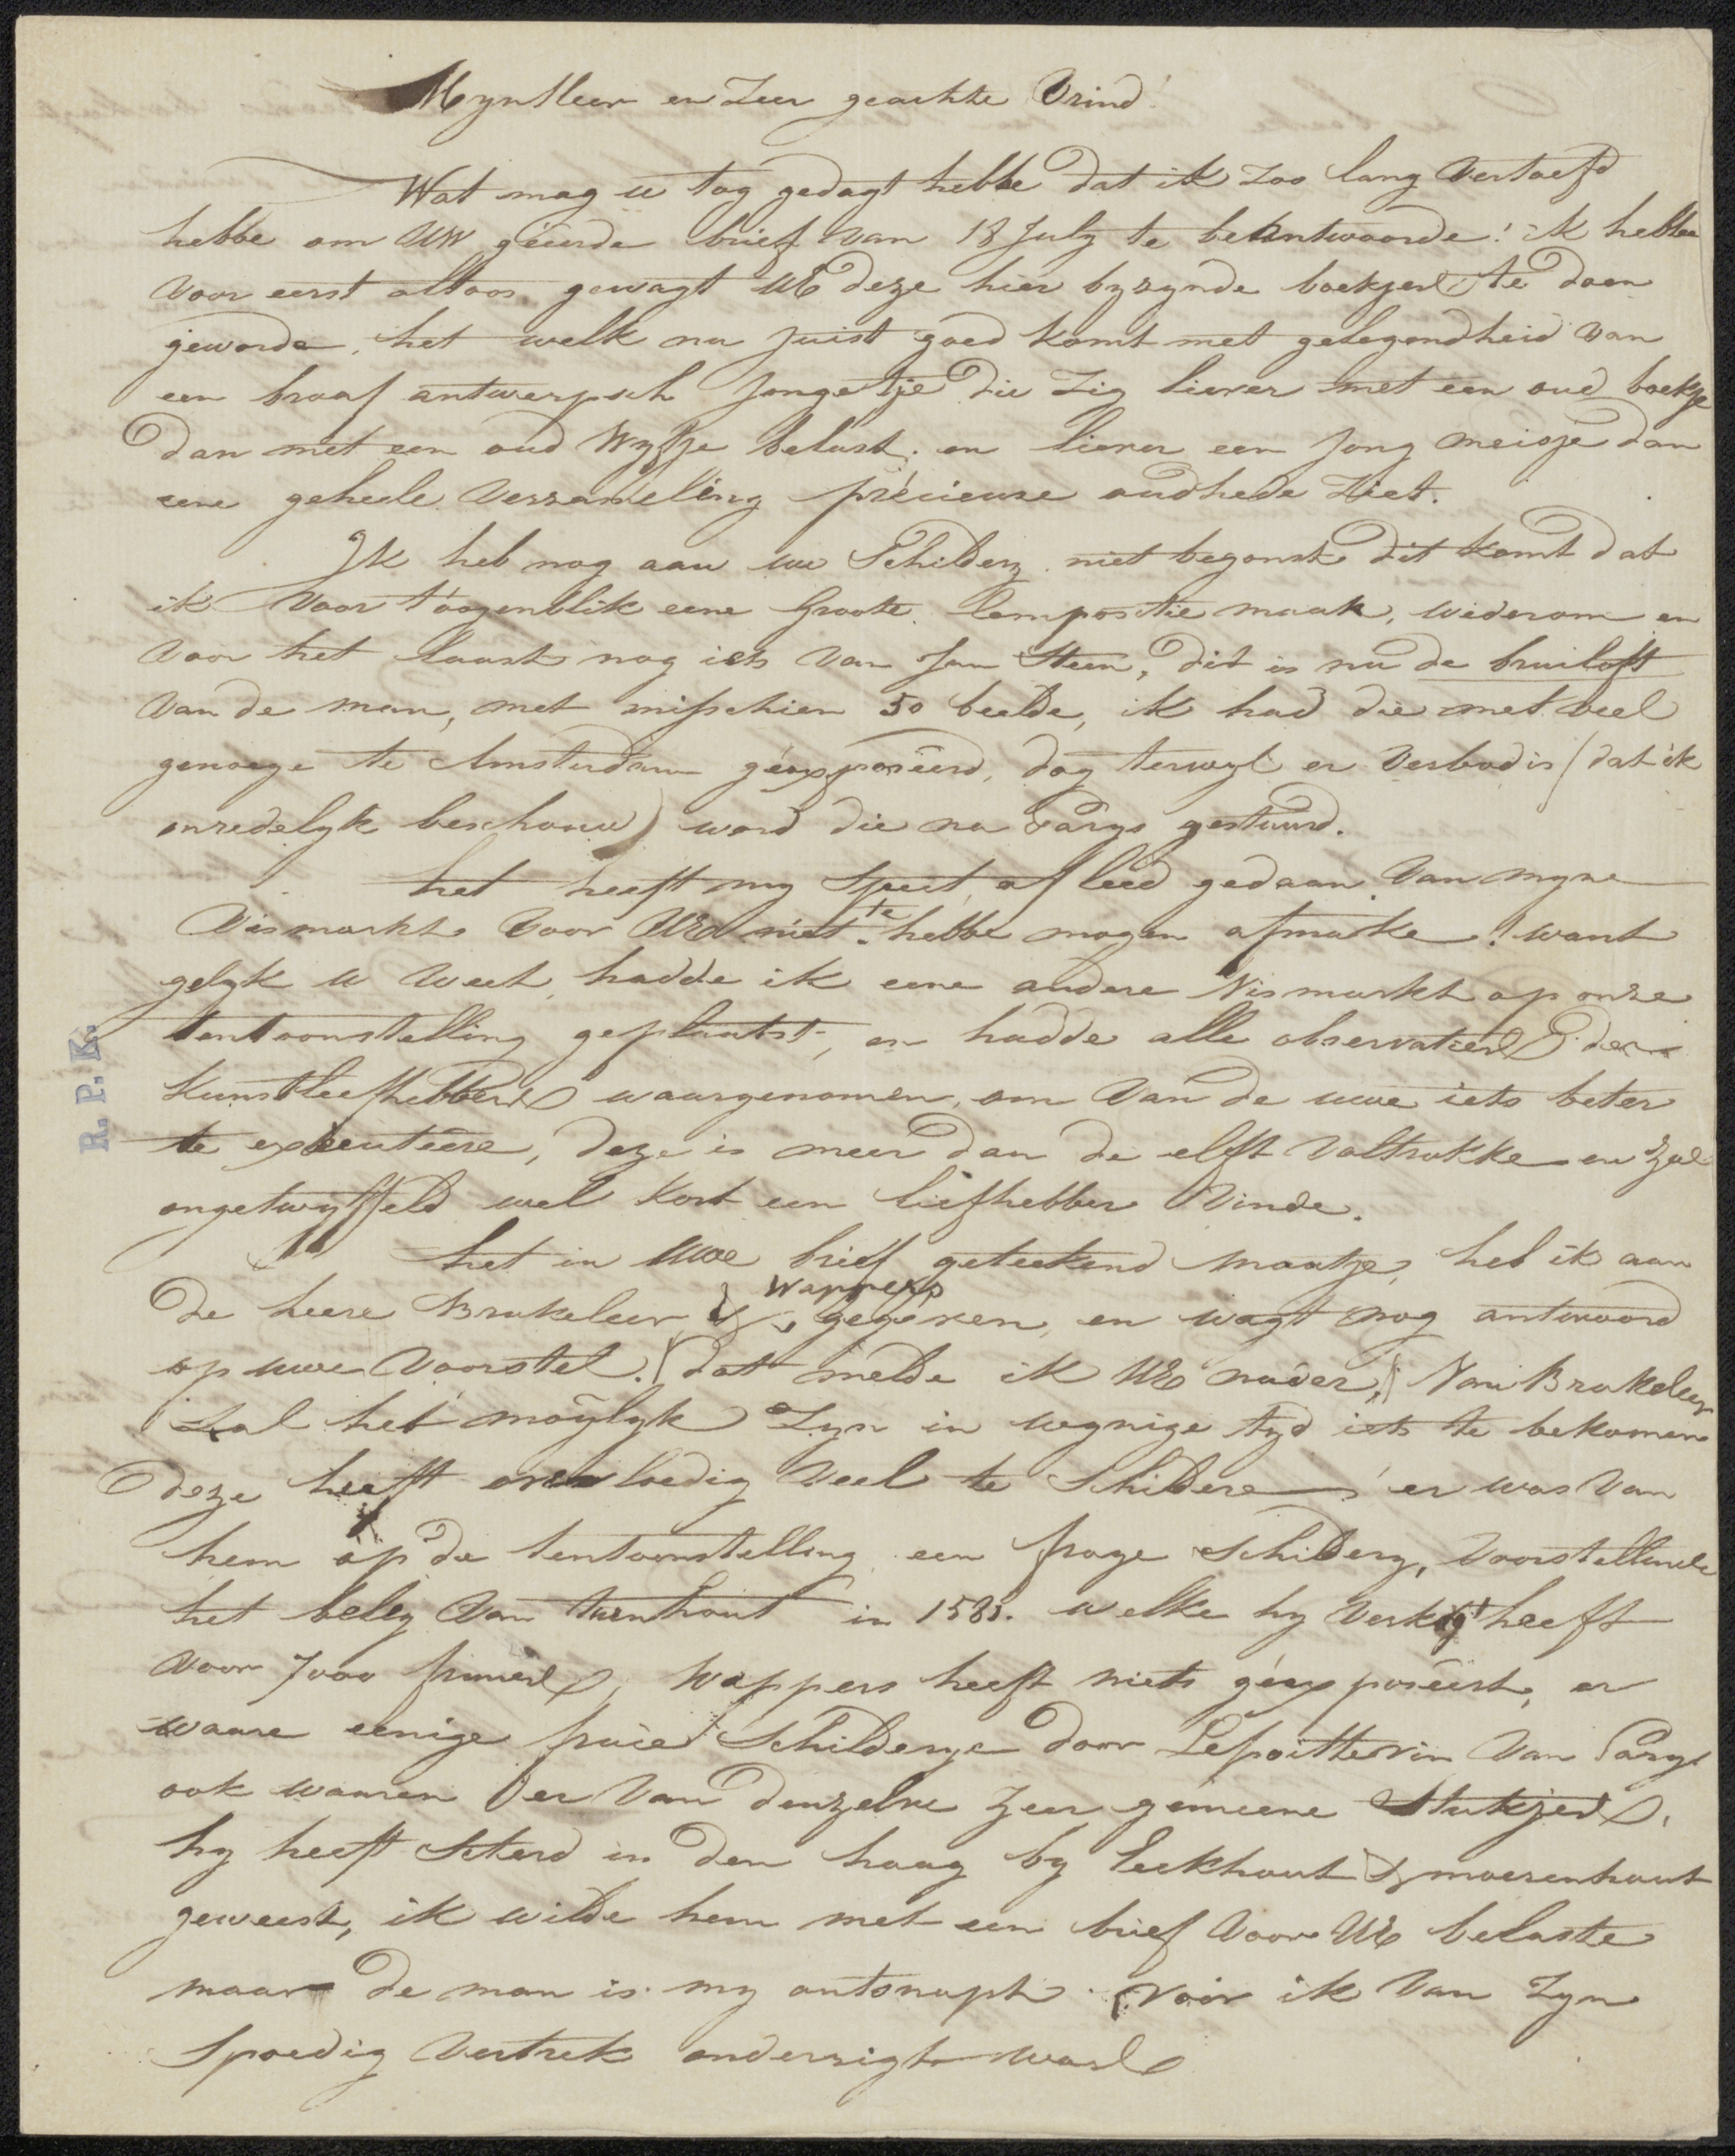 MynHeer en Zeer geachte Vrind!
Wat mag u tog gedagt hebbe dat ik zoo lang Vertoefd
hebbe om UW geeërde brief van 18 July te beantwoorde! ik hebbe
voor eerst altoos gewagt UE deze hier byzynde boekjes te doen
geworde, het welk nu juist goed komt met gelegendheid van
een braaf antwerpsch Jongetje die Zig liever met een oud boekje
dan met een oud Wyfje belast, en liever een Jong meisje dan
eene geheele Verzameling précieuse oudhede Ziet.
Ik heb nog aan uw Schildery niet begonst dit komt dat
ik Voor t'oogenblik eene Groote Compositie maak, wederom en
Voor het laast nog iets van Jan Steen, dit is nu de bruiloft
Van de man, met misschien 50 beelde, ik had die met veel
genoege te Amsterdam géexposeerd, dog terwyl er Verbod is (dat ik
onredelyk beschouw) word die na Parys gestuurd.
het heeft my Speet of leed gedaan Van myne
Vismarkt Voor UE niet te hebbe mogen afmake! want
gelyk u weet, hadde ik eene andere Vismarkt op onze
tentoonstelling geplaatst, en hadde alle observaties der
Kunstleefhebbers waargenomen, om Van de uwe iets beter
te executeere, deze is meer dan de elft Voltrokke en zal
ongetwyffeld wel kort een liefhebber Vinde.
het in Uwe brief geteekend maatje, heb ik aan
De heere Brakeleer & Wappers gegeven, en wagt nog antwoord
op uwe Voorstel. (dat melde ik UE nader) Van Brakeleer
Zal het moÿlyk Zyn in wynige tyd iets te bekomen
deze heeft overvloedig Veel te Schildere, er was Van
hem op de tentoonstelling een fraye Schildery, Voorstellende
het beleg Van turnhout in 1585. welke hy Verkogt heeft
voor 7000 francs, Wappers heeft niets géexposeert, er
waare eenige fraie Schilderye door Lepoittevin Van Parys
ook waaren er Van denzelve zeer gemeene Stukjes.
hy heeft in den haag by Eeckhout & moerenhout
geweest, ik wilde hem met een brief Voor UE belaste
maar de man is my ontsnapt Voor ik Van Zyn
Spoedig Vertrek onderrigt was
R. P. K.